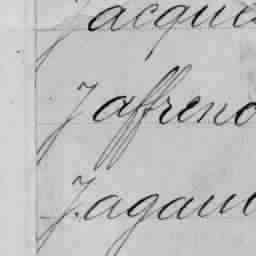 Jacque
Jaffreno
Jagaud